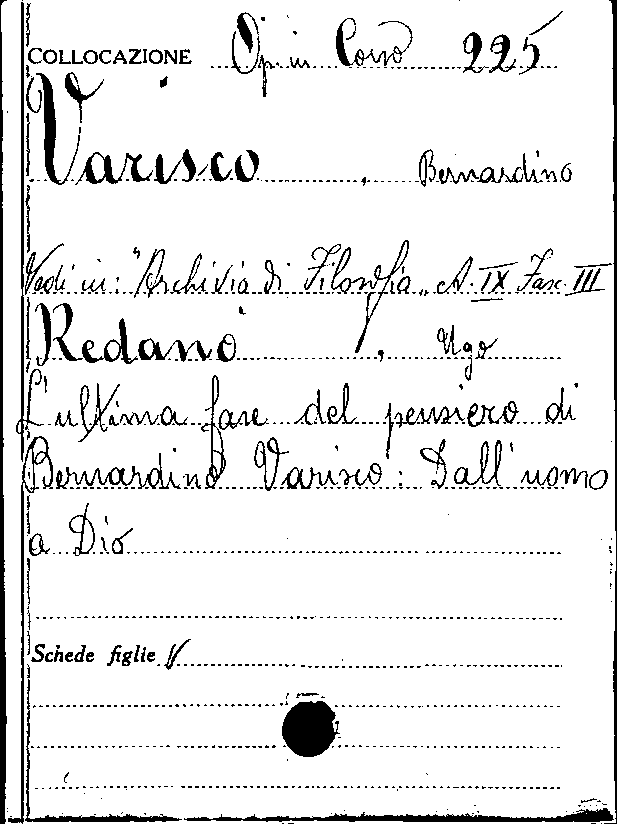 COLLOCAZIONE Op. in Corso 225
Varisco, Bernardino
Vedi in: "Archivio di Filosofia" A. IX Fasc. III
Redanò, Ugo
L'ultima fase del pensiero di
Bernardino Varisco: Dall'uomo
a Dio
Schede figlie V